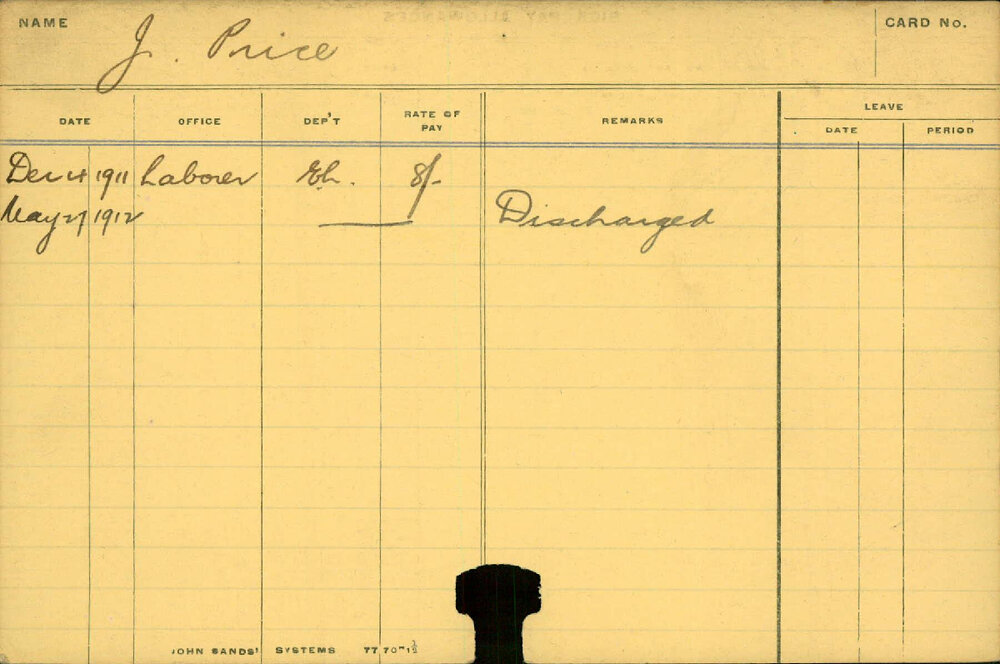 NAME J. Price CARD No.
DATE OFFICE DEP'T RATE OF PAY REMARKS LEAVE
DATE PERIOD
Dec 4 1911 Laborer 8/-
May 27 1912 —— Discharged
JOHN SANDS' SYSTEMS 7770